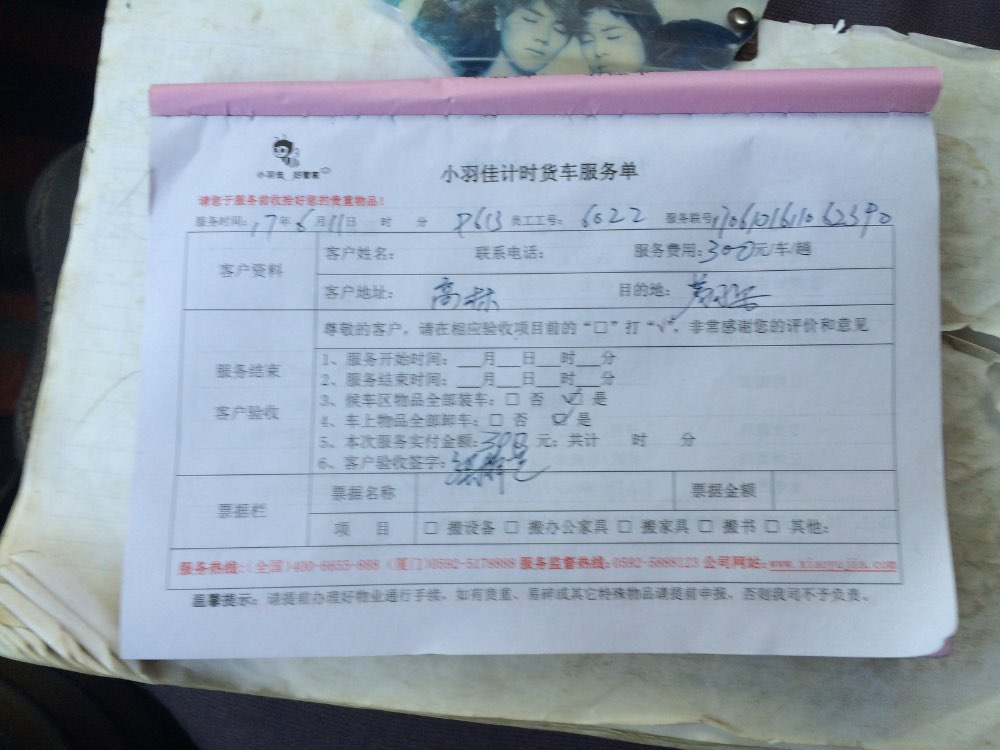 小羽佳计时货车服务单
请您于服务前收拾好您的贵重物品！
服务时间：17年6月11日 时 分 P613 员工工号： 6022 服务联号：
客户资料
客户姓名： 联系电话： 服务费用：300元/车/趟
客户地址： 高林 目的地：
服务结束
客户验收
尊敬的客户，请在相应验收项目前的“□”打“√”，非常感谢您的评价和意见
1、服务开始时间：___月___日___时___分
2、服务结束时间：___月___日___时___分
3、候车区物品全部装车：□ 否 ☑ 是
4、车上物品全部卸车：□ 否 ☑ 是
5、本次服务实付金额：300 元；共计 时 分
6、客户验收签字：
票据栏
票据名称 票据金额
项 目 □ 搬设备 □ 搬办公家具 □ 搬家具 □ 搬书 □ 其他：
服务热线：(全国)400-6655-888 (厦门)0592-5178888 服务监督热线：0592-5888123 公司网站：www.xiaoyujia.com
温馨提示：请提前办理好物业通行手续，如有贵重、易碎或其它特殊物品请提前申报，否则我司不予负责。